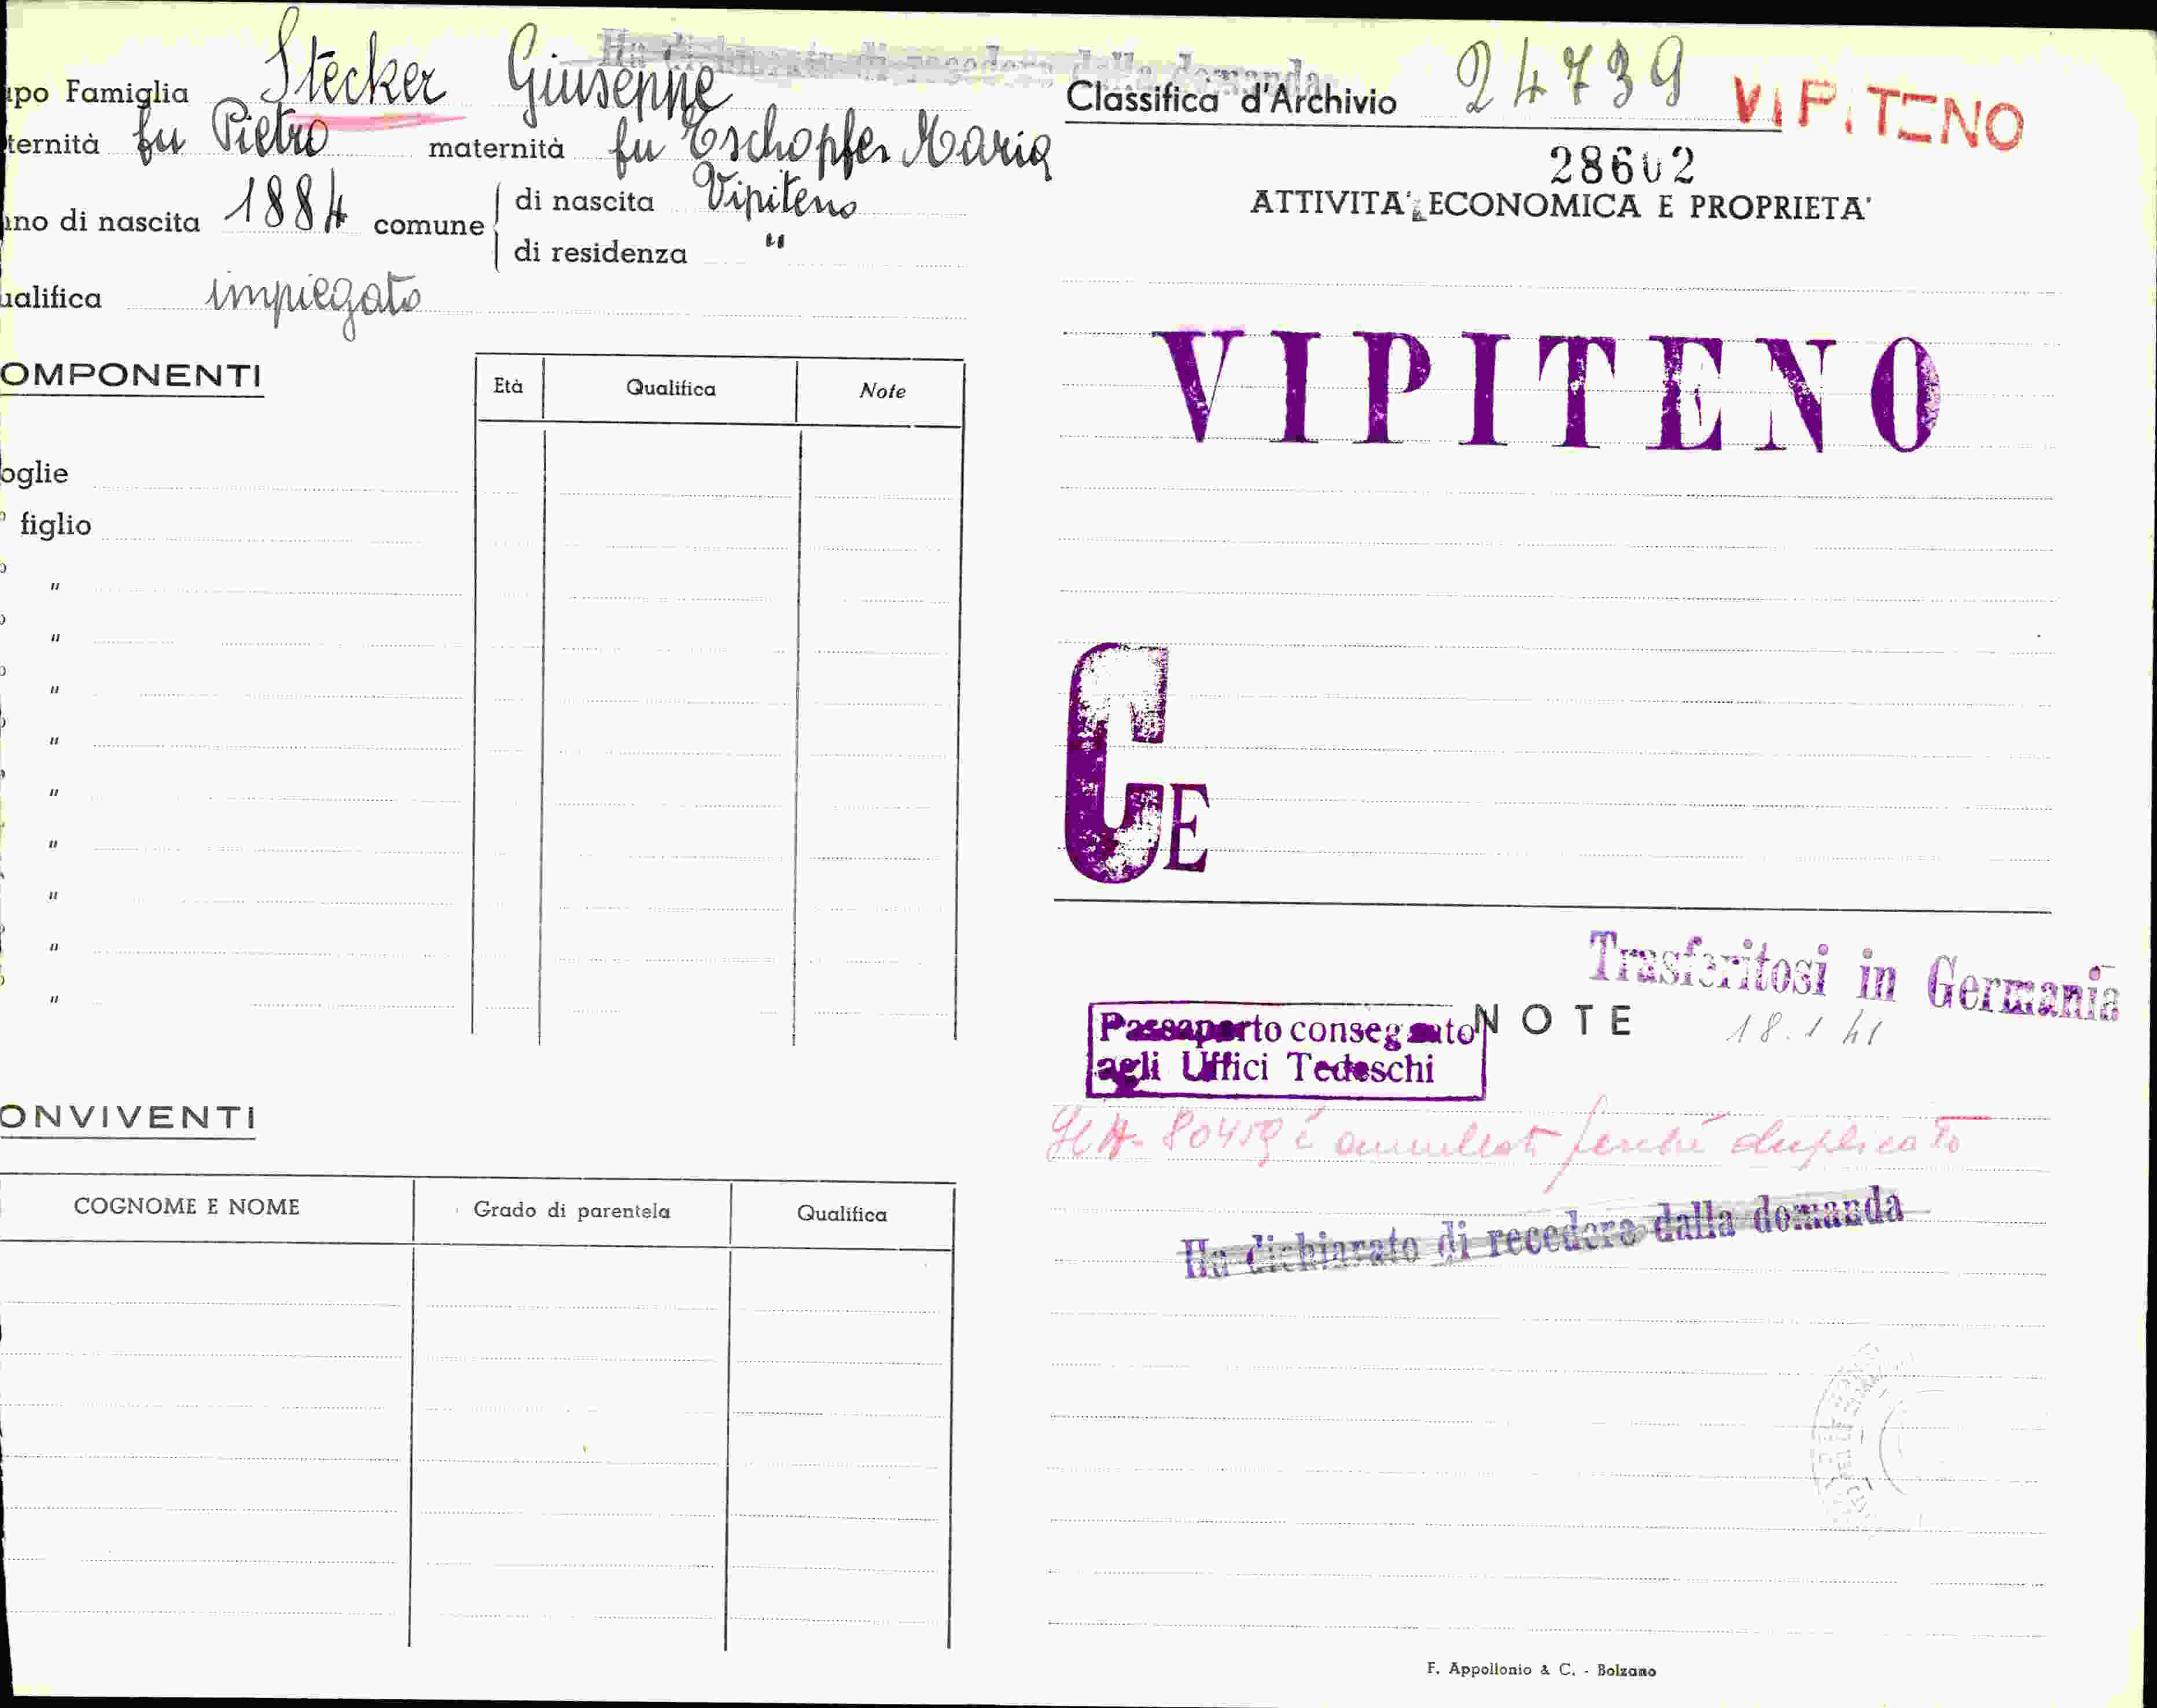 Ha dichiarato di recedere dalla domanda
apo Famiglia Stecker Giuseppe
ternità fu Pietro maternità fu Tschopfer Maria
nno di nascita 1884 comune di nascita Vipiteno
di residenza "
ualifica impiegato
OMPONENTI
Età Qualifica Note
oglie
figlio
"
"
"
"
"
"
"
"
"
ONVIVENTI
COGNOME E NOME Grado di parentela Qualifica
Classifica d'Archivio 24739 VIPITENO
28602
ATTIVITA' ECONOMICA E PROPRIETA'
VIPITENO
CE
Trasferitosi in Germania
NOTE 18.1 41
Passaporto consegnato
agli Uffici Tedeschi
80459 è annullato perché duplicato
Ha dichiarato di recedere dalla domanda
F. Appollonio & C. - Bolzano